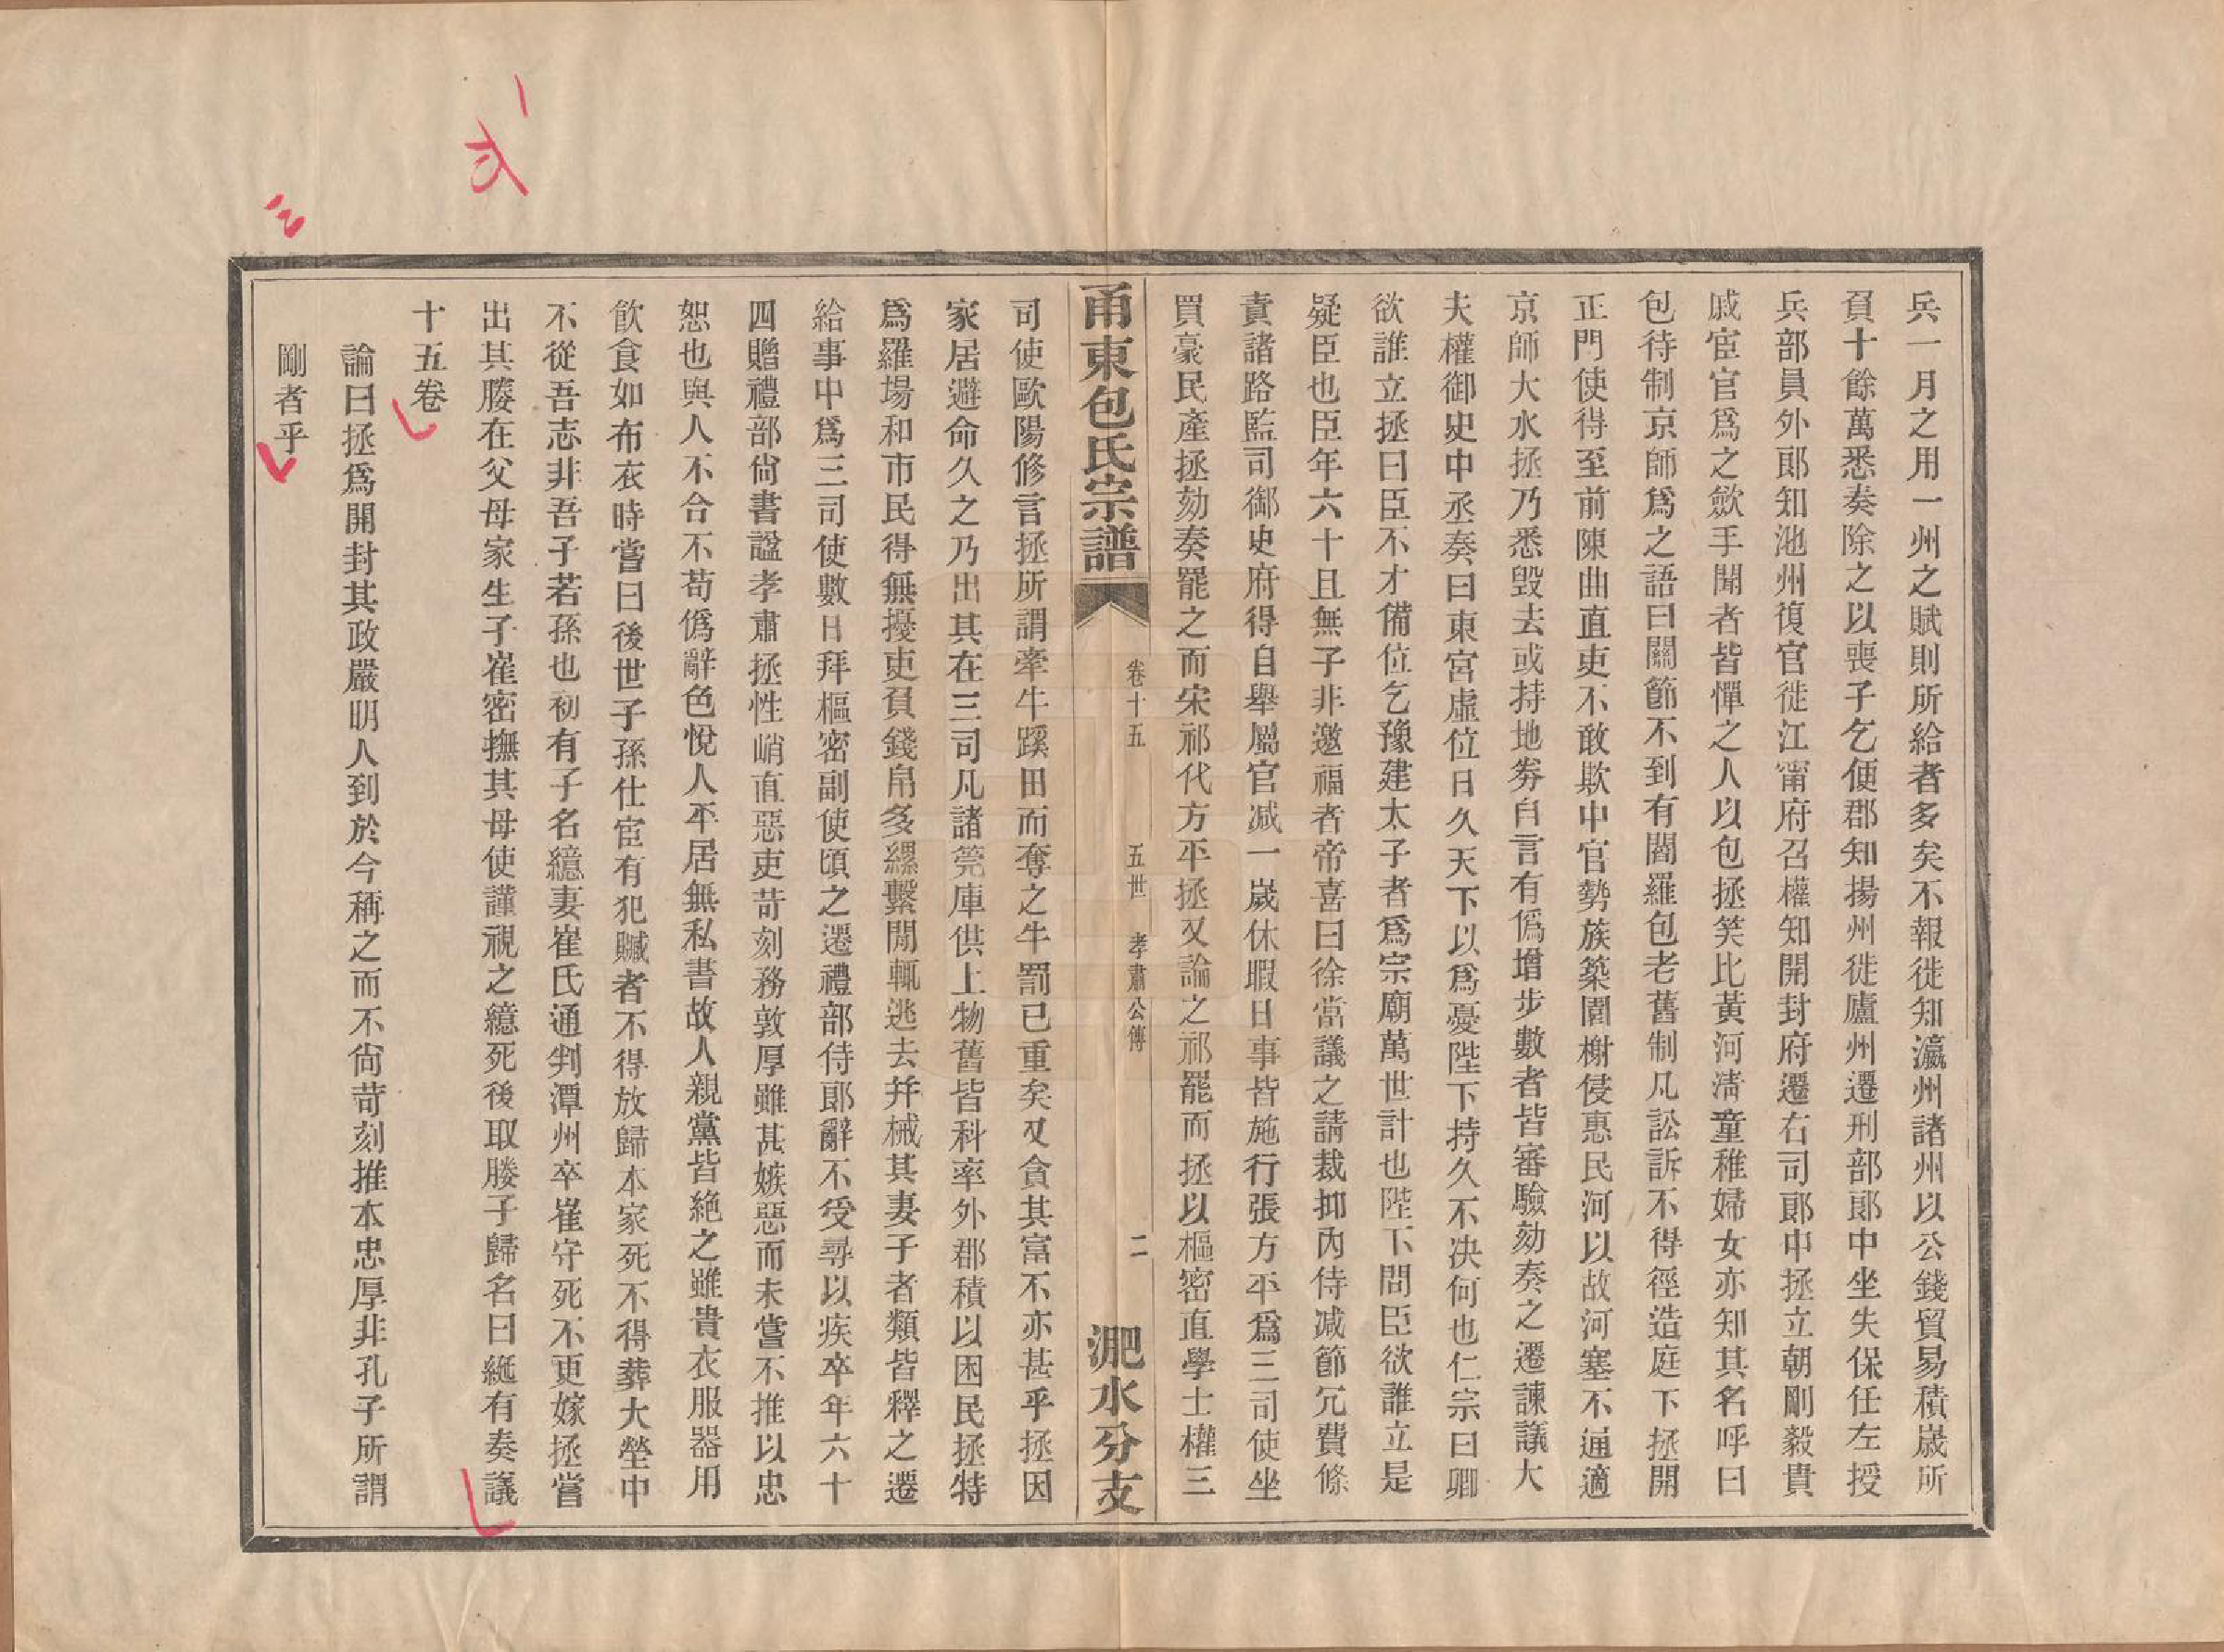 兵一月之用一州之賦則所給者多矣不報徙知瀛州諸州以公錢貿易積歲所
負十餘萬悉奏除之以喪子乞便郡知揚州徙廬州遷刑部郎中坐失保任左授
兵部員外郎知池州復官徙江甯府召權知開封府遷右司郎中拯立朝剛毅貴
戚宦官爲之歛手聞者皆憚之人以包拯笑比黃河淸童稚婦女亦知其名呼曰
包待制京師爲之語曰關節不到有閻羅包老舊制凡訟訴不得徑造庭下拯開
正門使得至前陳曲直吏不敢欺中官勢族築園榭侵惠民河以故河塞不通適
京師大水拯乃悉毁去或持地劵自言有僞增步數者皆審驗劾奏之遷諫議大
夫權御史中丞奏曰東宮虛位日久天下以爲憂陛下持久不决何也仁宗曰卿
欲誰立拯曰臣不才備位乞豫建太子者爲宗廟萬世計也陛下問臣欲誰立是
疑臣也臣年六十且無子非邀福者帝喜曰徐當議之請裁抑內侍减節冗費條
責諸路監司御史府得自舉屬官减一歲休暇日事皆施行張方平爲三司使坐
買豪民產拯劾奏罷之而宋祁代方平拯又論之祁罷而拯以樞密直學士權三
甬東包氏宗譜 卷十五 五世 孝肅公傳 二 淝水分支
司使歐陽修言拯所謂牽牛蹊田而奪之牛罰已重矣又貪其富不亦甚乎拯因
家居避命久之乃出其在三司凡諸筦庫供上物舊皆科率外郡積以困民拯特
爲羅場和市民得無擾吏負錢帛多縲繫間輒逃去幷械其妻子者類皆釋之遷
給事中爲三司使數日拜樞密副使頃之遷禮部侍郎辭不受尋以疾卒年六十
四贈禮部尙書諡孝肅拯性峭直惡吏苛刻務敦厚雖甚嫉惡而未嘗不推以忠
恕也與人不合不苟僞辭色悅人平居無私書故人親黨皆絶之雖貴衣服器用
飮食如布衣時嘗曰後世子孫仕宦有犯贓者不得放歸本家死不得葬大塋中
不從吾志非吾子若孫也初有子名繶妻崔氏通判潭州卒崔守死不更嫁拯嘗
出其媵在父母家生子崔密撫其母使謹視之繶死後取媵子歸名曰綖有奏議
十五卷
論曰拯爲開封其政嚴明人到於今稱之而不尙苛刻推本忠厚非孔子所謂
剛者乎